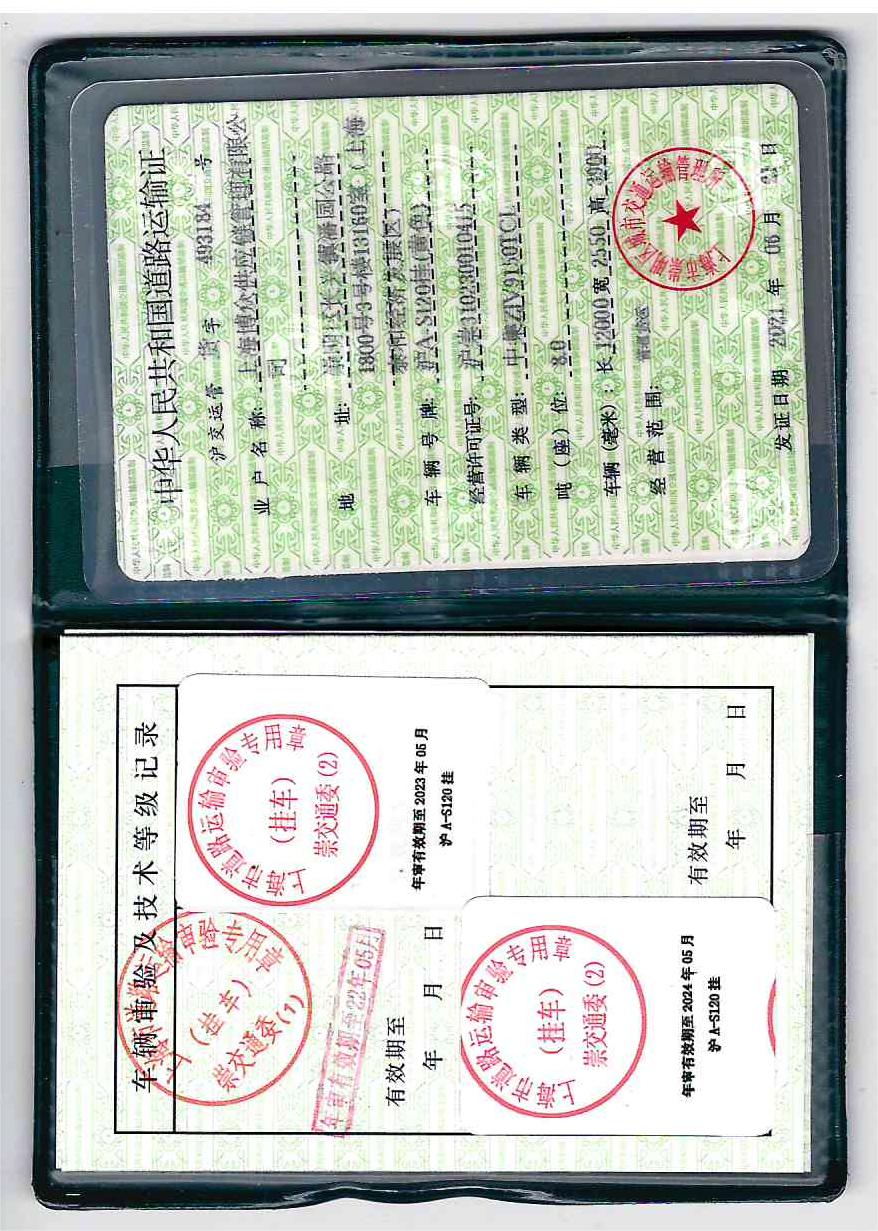 中华人民共和国道路运输证
沪交运管 货字 493184 号
业户名称: 上海博众供应链管理有限公
司
地 址: 崇明区长兴镇潘园公路
1800号3号楼13160室（上海
泰和经济发展区）
车辆号牌: 沪A-S120挂(黄色)
经营许可证号: 沪崇310230010415
车辆类型: 中集ZJV9180TCL
吨（座）位: 8.0
车辆（毫米）: 长12000 宽2550 高3900
经营范围: 普通货运
上海市崇明区城市交通运输管理所
发证日期 2021 年 06 月 21 日
车辆审验及技术等级记录
上海市道路运输审验专用章
（挂车）
崇交通委(1)
年审有效期至22年05月
有效期至
年 月 日
上海市道路运输审验专用章
（挂车）
崇交通委(2)
年审有效期至2023年05月
沪A-S120挂
上海市道路运输审验专用章
（挂车）
崇交通委(2)
年审有效期至2024年05月
沪A-S120挂
有效期至
年 月 日